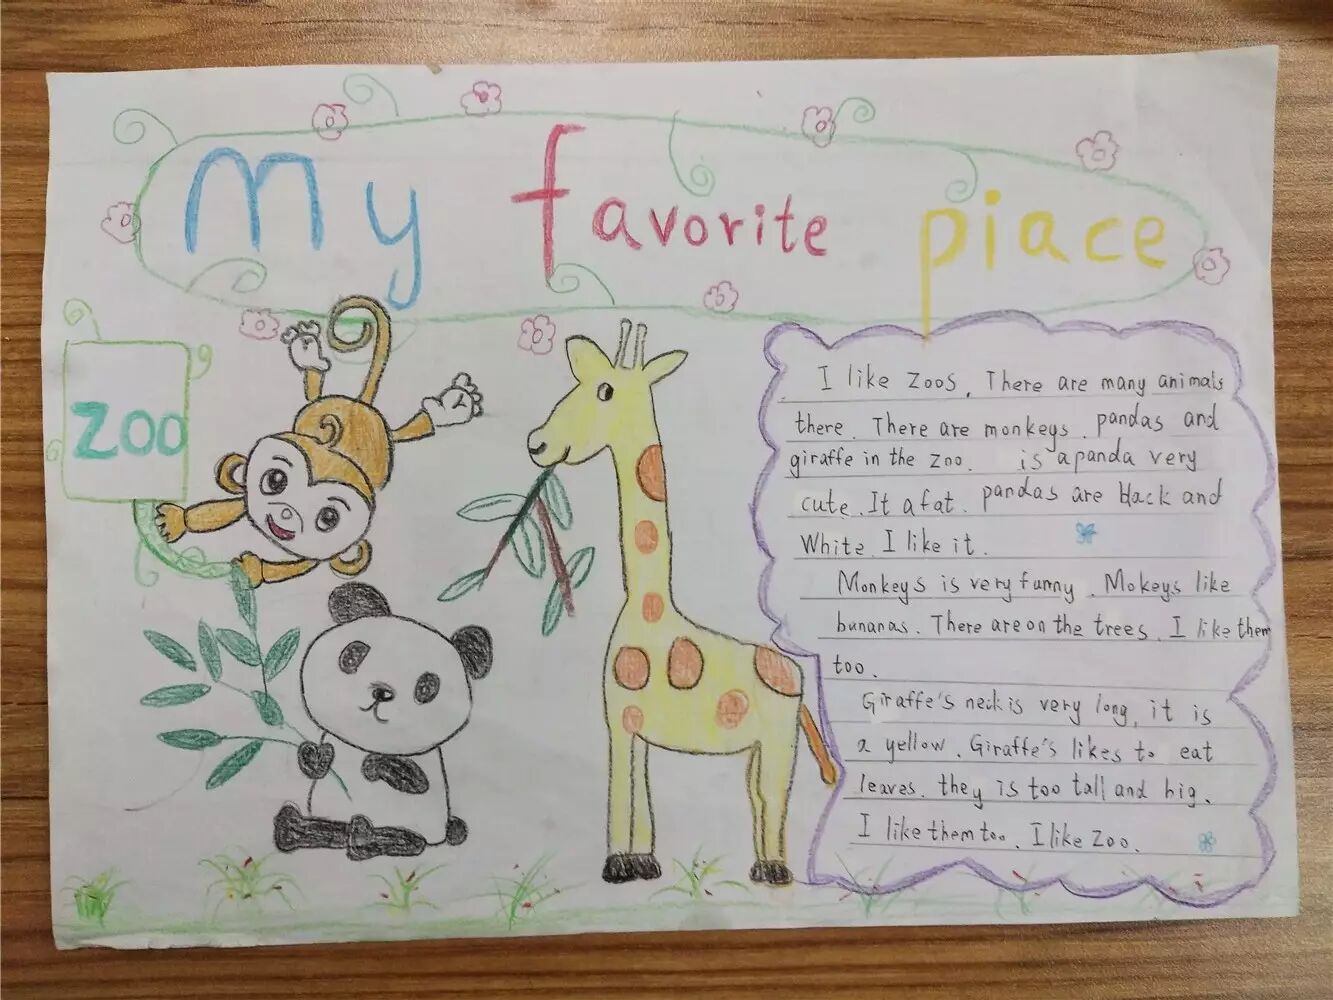 My favorite piace
ZOO
I like zoos, There are many animals
there. There are monkeys. pandas and
giraffe in the zoo. is a panda very
cute. It a fat. pandas are black and
White. I like it.
Monkeys is very funny. Mokeys like
bananas. There are on the trees. I like them
too.
Giraffe's neck is very long, it is
a yellow. Giraffe's likes to eat
leaves. they is too tall and big.
I like them too. I like Zoo.